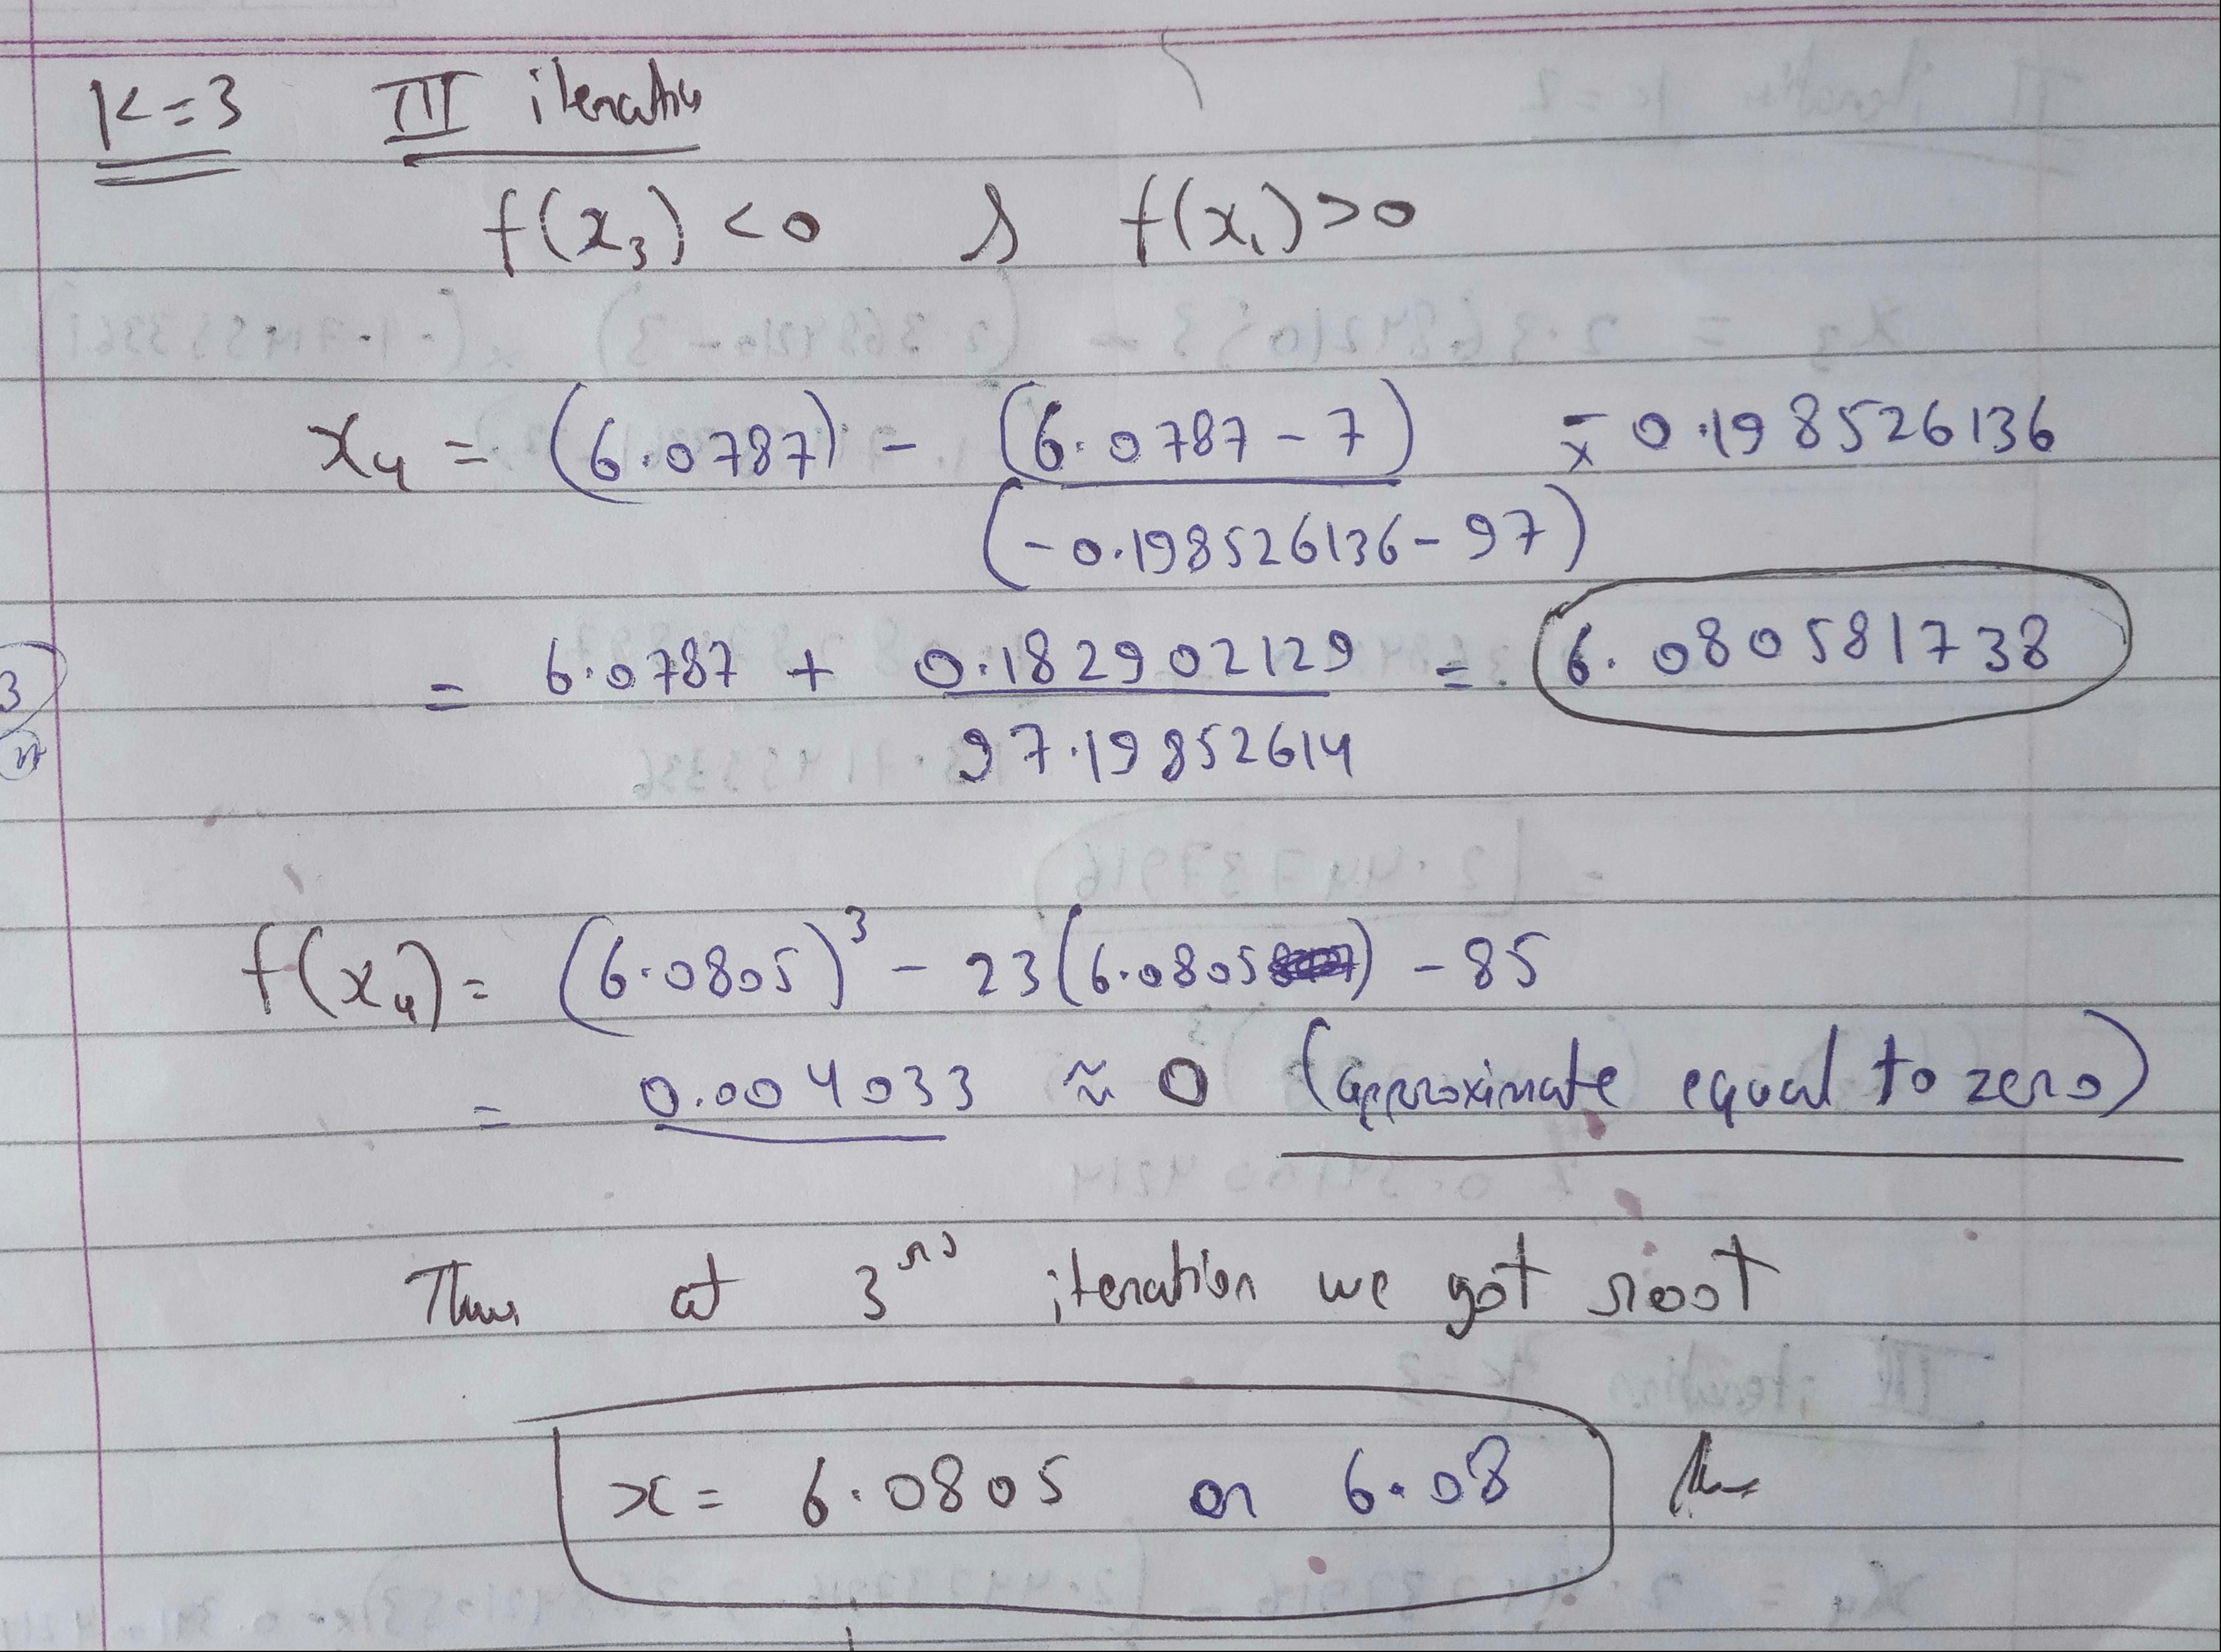 K=3 III iteration
f(x₃) <0 & f(x₁)>0
x₄ = (6.0787) - (6.0787-7) x -0.198526136
(-0.198526136-97)
= 6.0787 + 0.182902129 = 6.080581738
97.19852614
f(x₄) = (6.0805)³ - 23(6.0805) -85
= 0.004033 ≈ 0 (approximate equal to zero)
Thus at 3rd iteration we got root
x = 6.0805 or 6.08